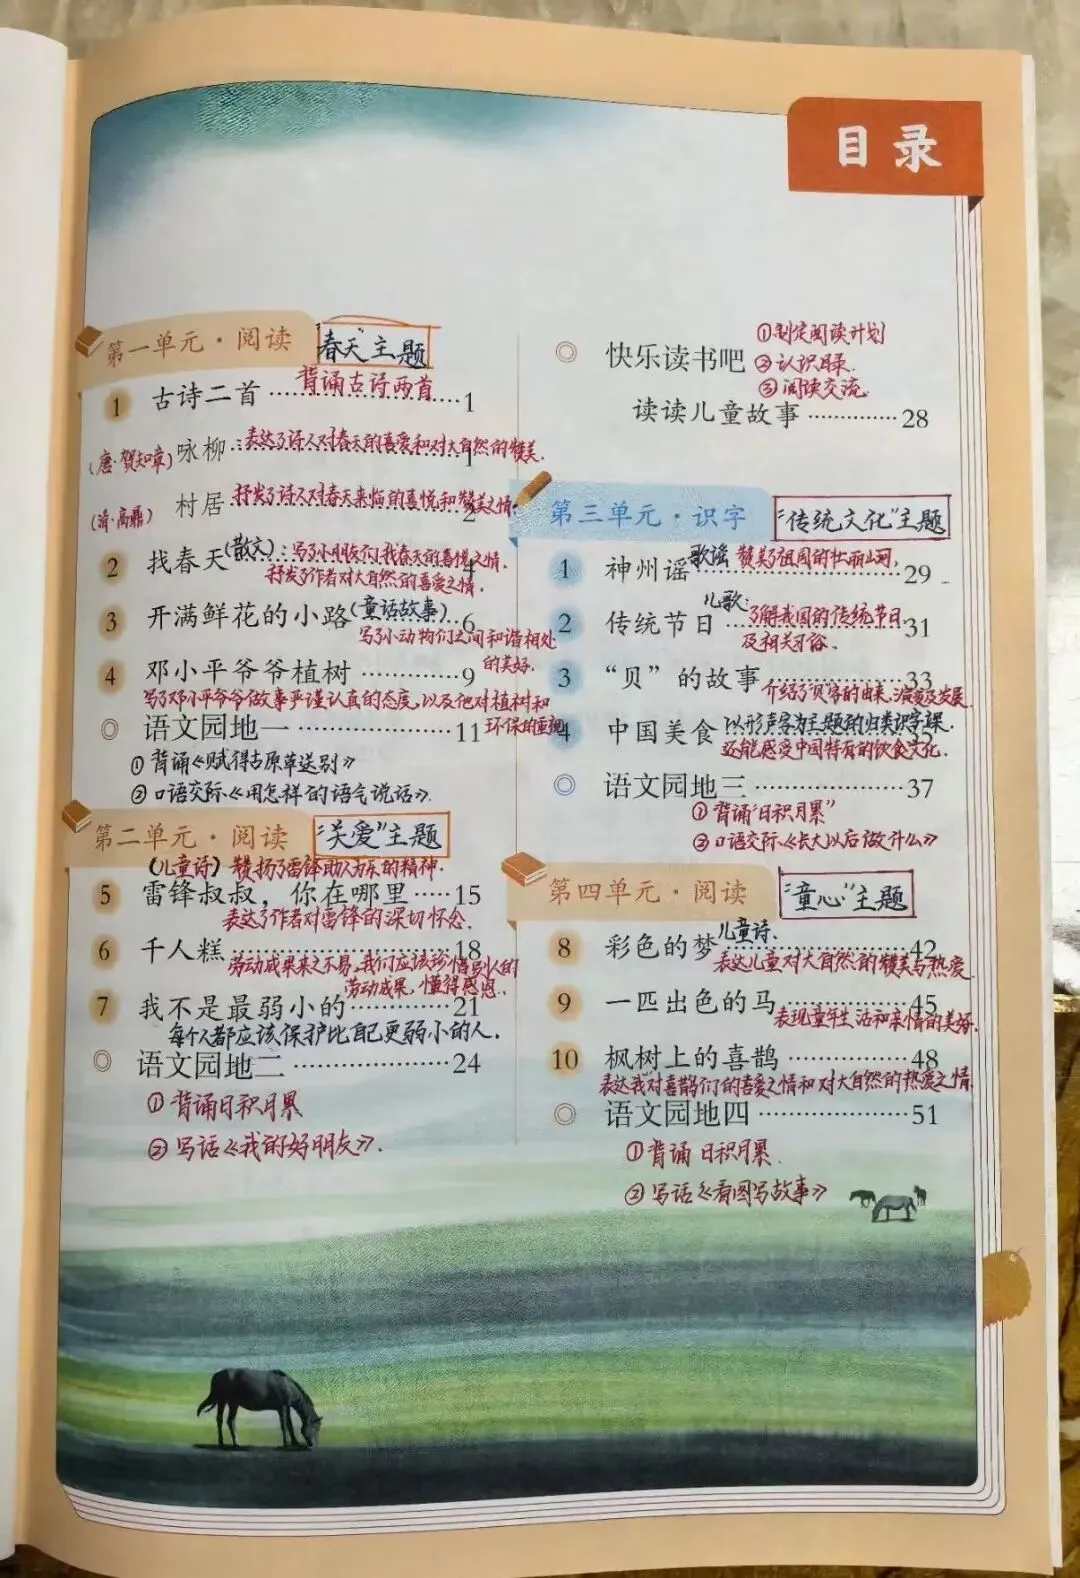 目录
第一单元·阅读 "春天"主题
背诵古诗两首
1 古诗二首 1
(唐·贺知章) 咏柳 1 表达了诗人对春天的喜爱和对大自然的赞美.
(清·高鼎) 村居 2 抒发了诗人对春天来临的喜悦和赞美之情
2 找春天(散文) 4 写了小朋友们找春天的喜悦之情.
抒发了作者对大自然的喜爱之情.
3 开满鲜花的小路(童话故事) 6
写了小动物们之间和谐相处
的美好.
4 邓小平爷爷植树 9
写了邓小平爷爷做事严谨认真的态度,以及他对植树和
环保的重视
语文园地一 11
①背诵《赋得古原草送别》
②口语交际《用怎样的语气说话》.
第二单元·阅读 "关爱"主题
(儿童诗) 赞扬了雷锋助人为乐的精神.
5 雷锋叔叔,你在哪里 15
表达了作者对雷锋的深切怀念.
6 千人糕 18
劳动成果来之不易,我们应该珍惜别人的
劳动成果,懂得感恩.
7 我不是最弱小的 21
每个人都应该保护比自己更弱小的人.
语文园地二 24
①背诵日积月累
②写话《我的好朋友》.
快乐读书吧
①制定阅读计划
②认识目录.
③阅读交流.
读读儿童故事 28
第三单元·识字 "传统文化"主题
1 神州谣 29 歌谣 赞美了祖国的壮丽山河,
2 传统节日 31 儿歌: 了解我国的传统节日
及相关习俗.
3 "贝"的故事 33
介绍了贝字的由来、演变及发展.
4 中国美食 以形声字为主题的归类识字课.
还能感受中国特有的饮食文化.
语文园地三 37
①背诵"日积月累"
②口语交际《长大以后做什么》
第四单元·阅读 "童心"主题
8 彩色的梦 42 儿童诗.
表达儿童对大自然的赞美与热爱
9 一匹出色的马 45
表现童年生活和亲情的美好.
10 枫树上的喜鹊 48
表达我对喜鹊们的喜爱之情和对大自然的热爱之情.
语文园地四 51
①背诵 日积月累.
②写话《看图写故事》